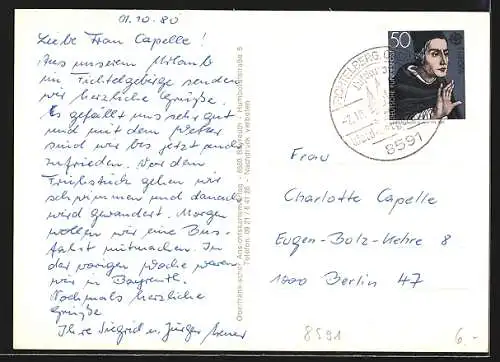 01.10.80
Liebe Frau Capelle!
Aus unserem Urlaub
im Fichtelgebirge senden
wir herzliche Grüße.
Es gefällt uns sehr gut
und mit dem Wetter
sind wir bis jetzt auch
zufrieden. Vor dem
Frühstück gehen wir
schwimmen und danach
wird gewandert. Morgen
wollen wir eine Bus-
fahrt mitmachen. In
der vorigen Woche waren
wir in Bayreuth.
Nochmals herzliche
Grüße
Ihre Siegrid u. Jürgen
Oberfränkischer Ansichtskartenverlag - 8580 Bayreuth - Humboldtstraße 5
Telefon 09 21 / 6 41 26 - Nachdruck verboten
50
DEUTSCHE BUNDESPOST
FICHTELBERG
8591
Frau
Charlotte Capelle
Eugen-Bolz-Kehre 8
1000 Berlin 47
8591
6.-